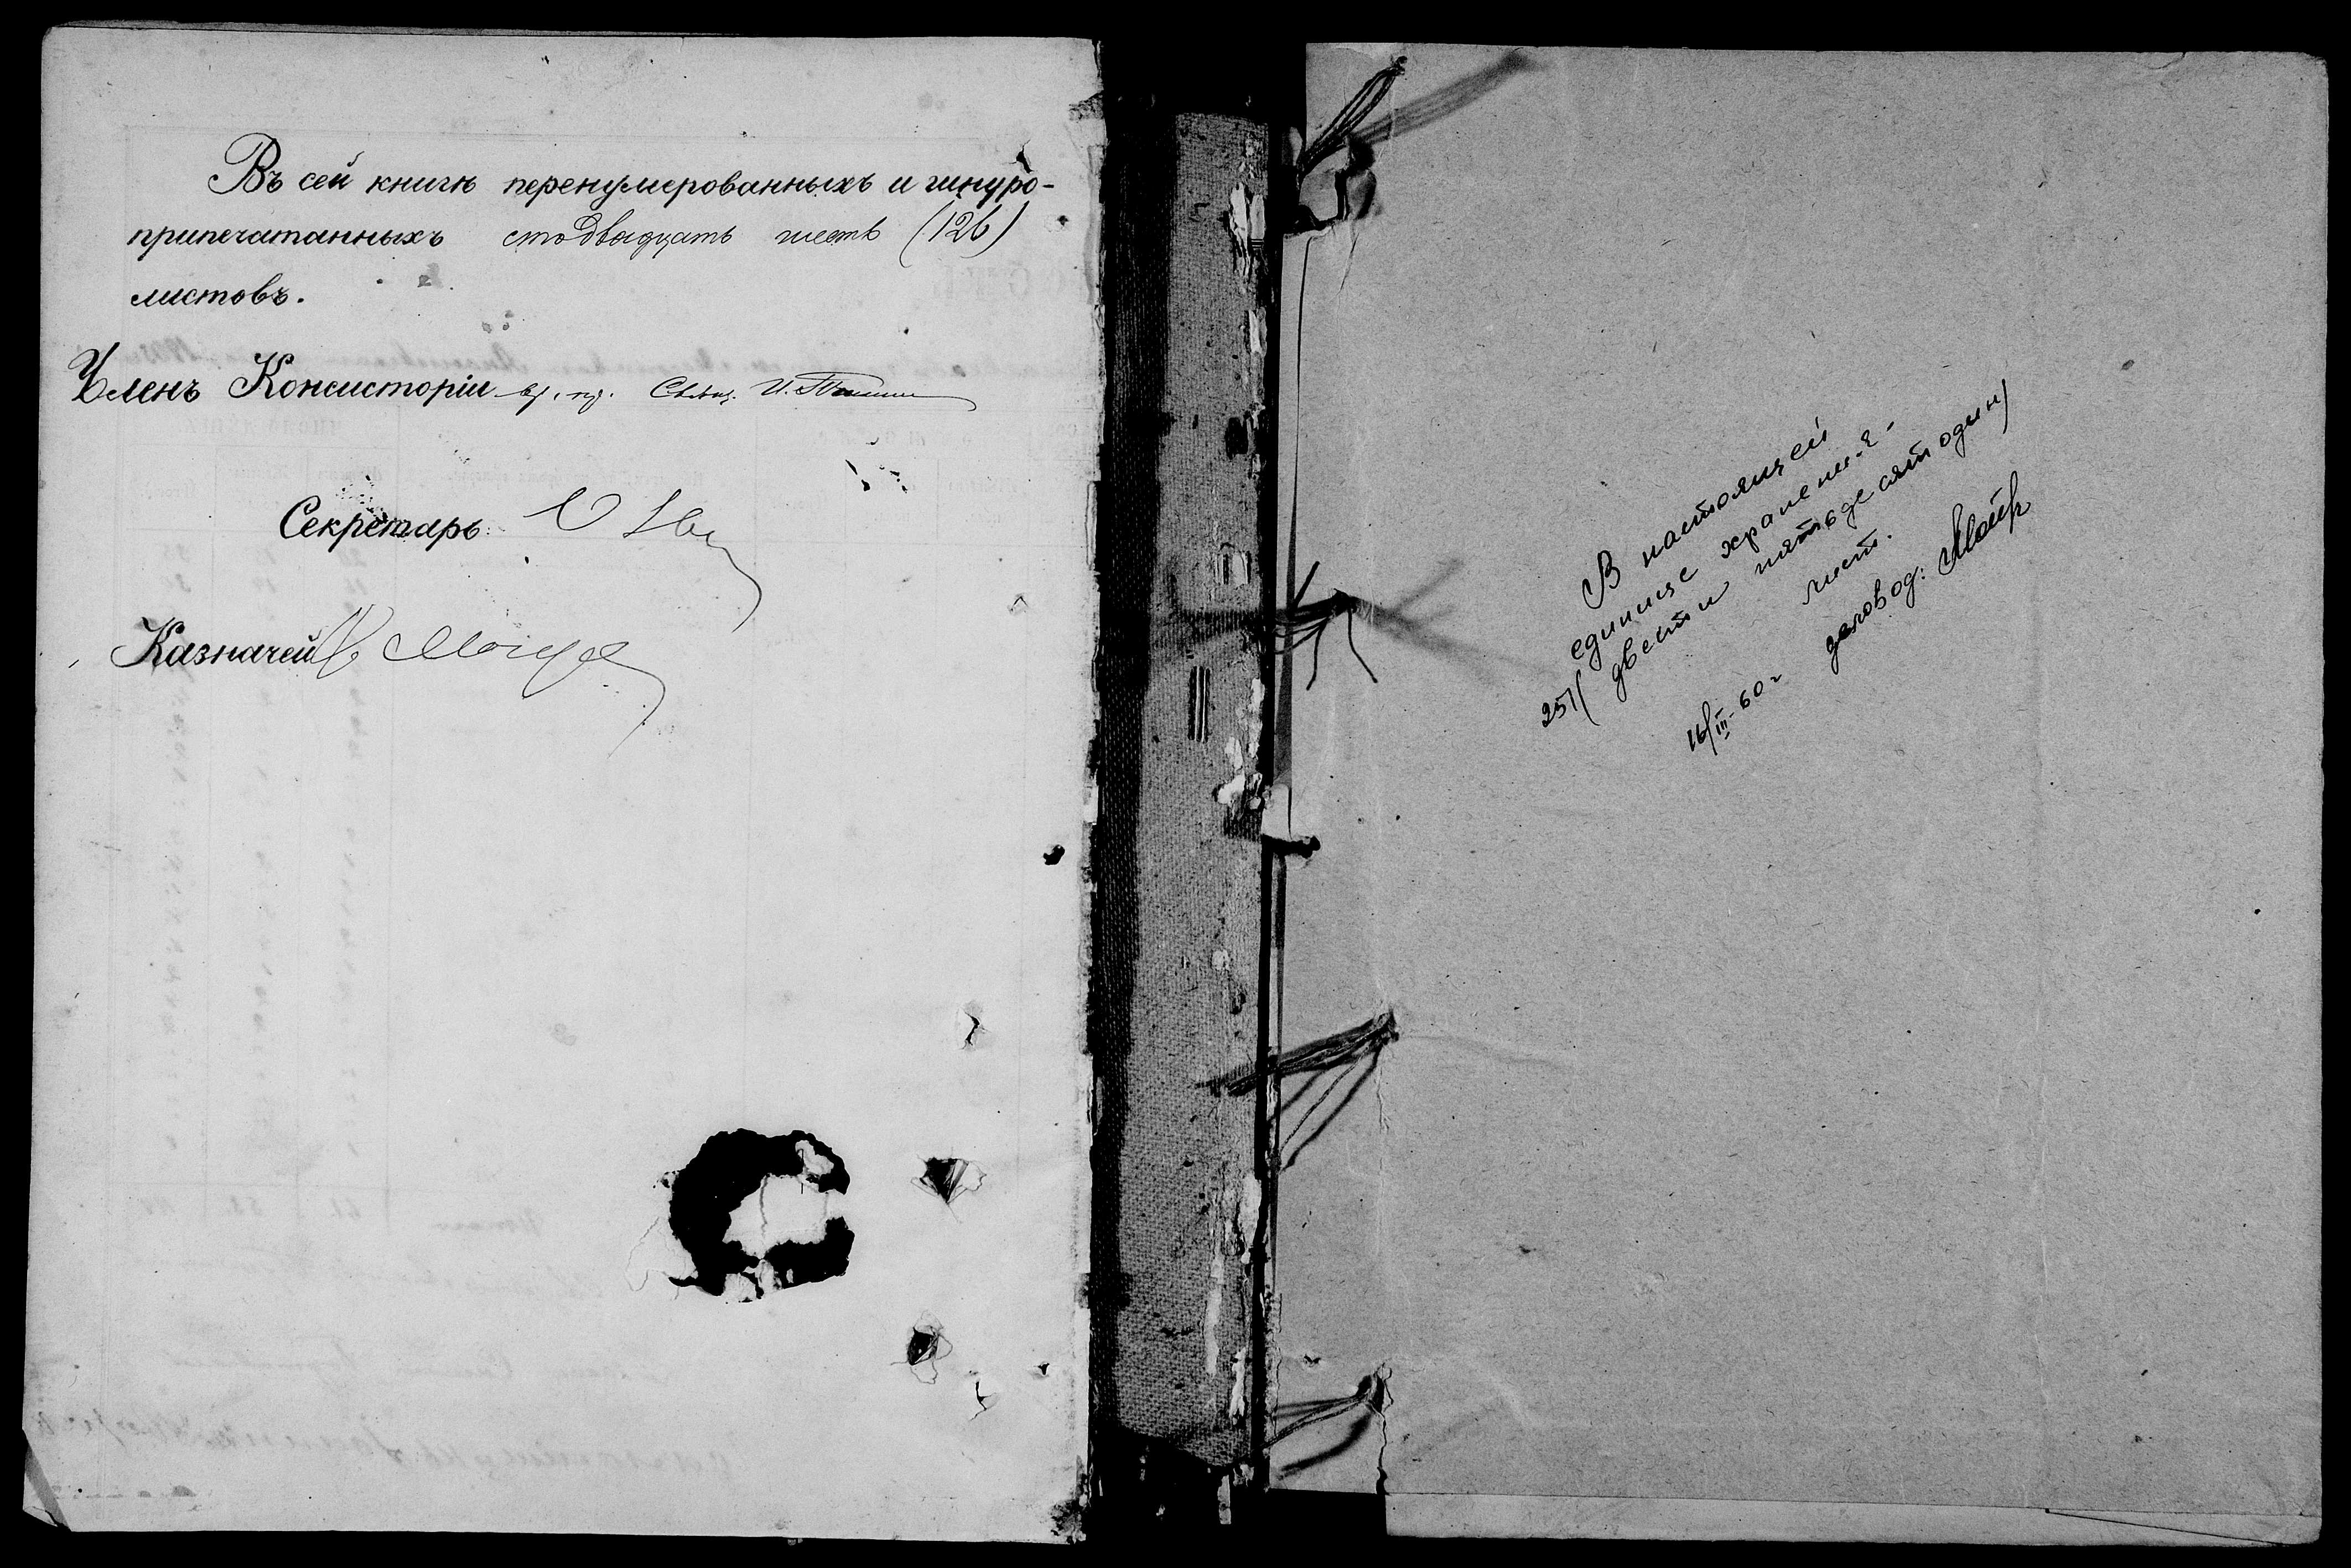 Въ сей книгѣ перенумерованныхъ и шнуро-
припечатанныхъ стодвадцать шесть (126)
листовъ.
Членъ Консисторіи вр. пр. Свящ. И.
Секретарь
Казначей
В настоящей
единице хранения-
251/ двести пятьдесят один/
лист.
16/III-60 г деловод: